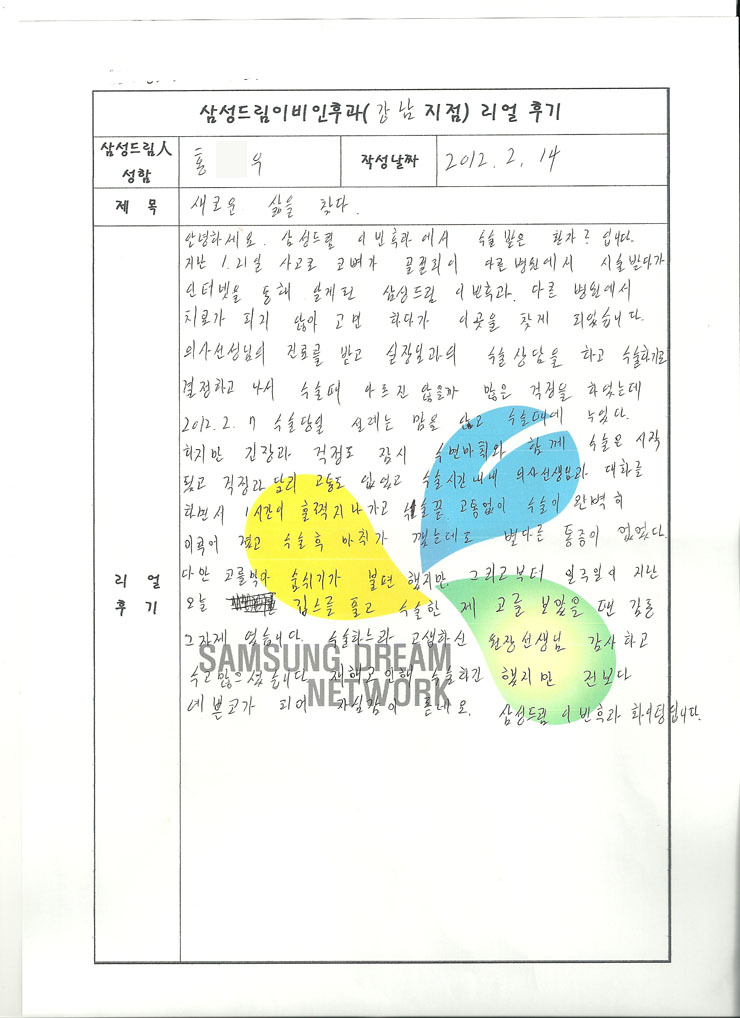 삼성드림이비인후과( 강남 지점) 리얼 후기
삼성드림人 성함
홍 우
작성날짜
2012. 2. 14
제 목
새로운 삶을 찾다.
리 얼 후 기
안녕하세요. 삼성드림 이빈후과에서 수술 받은 환자? 입니다.
지난 1.21일 사고로 코뼈가 골절되어 다른병원에서 시술받다가
인터넷을 통해 알게된 삼성드림 이빈후과. 다른 병원에서
치료가 되지 않아 고민 하다가 이곳을 찾게 되었습니다.
의사선생님의 진료를 받고 실장님과의 수술상담을 하고 수술하기로
결정하고 나서 수술때 아프진 않을까 많은 걱정을 하였는데
2012. 2. 7 수술당일 설레는 맘을 안고 수술대에 누웠다.
하지만 긴장과 걱정도 잠시 수면마취와 함께 수술은 시작
됬고 걱정과 달리 고통도 없었고 수술시간내내 의사선생님과 대화를
하면서 1시간이 훌쩍지나가고 수술끝 고통없이 수술이 완벽히
이루어 졌고 수술후 마취가 깼는데도 별다른 통증이 없었다.
다만 코를막아 숨쉬기가 불편했지만. 그리고부터 일주일이 지난
오늘 깁스를 풀고 수술한 제 코를 보았을 땐 감동
그자체 였습니다. 수술하느라 고생하신 원장선생님 감사하고
수고많으셨습니다. 재해로 인해 수술하긴 했지만 전보다
예쁜코가 되어 자심감이 돋네요. 삼성드림 이빈후과 화이팅입니다.
SAMSUNG DREAM
NETWORK